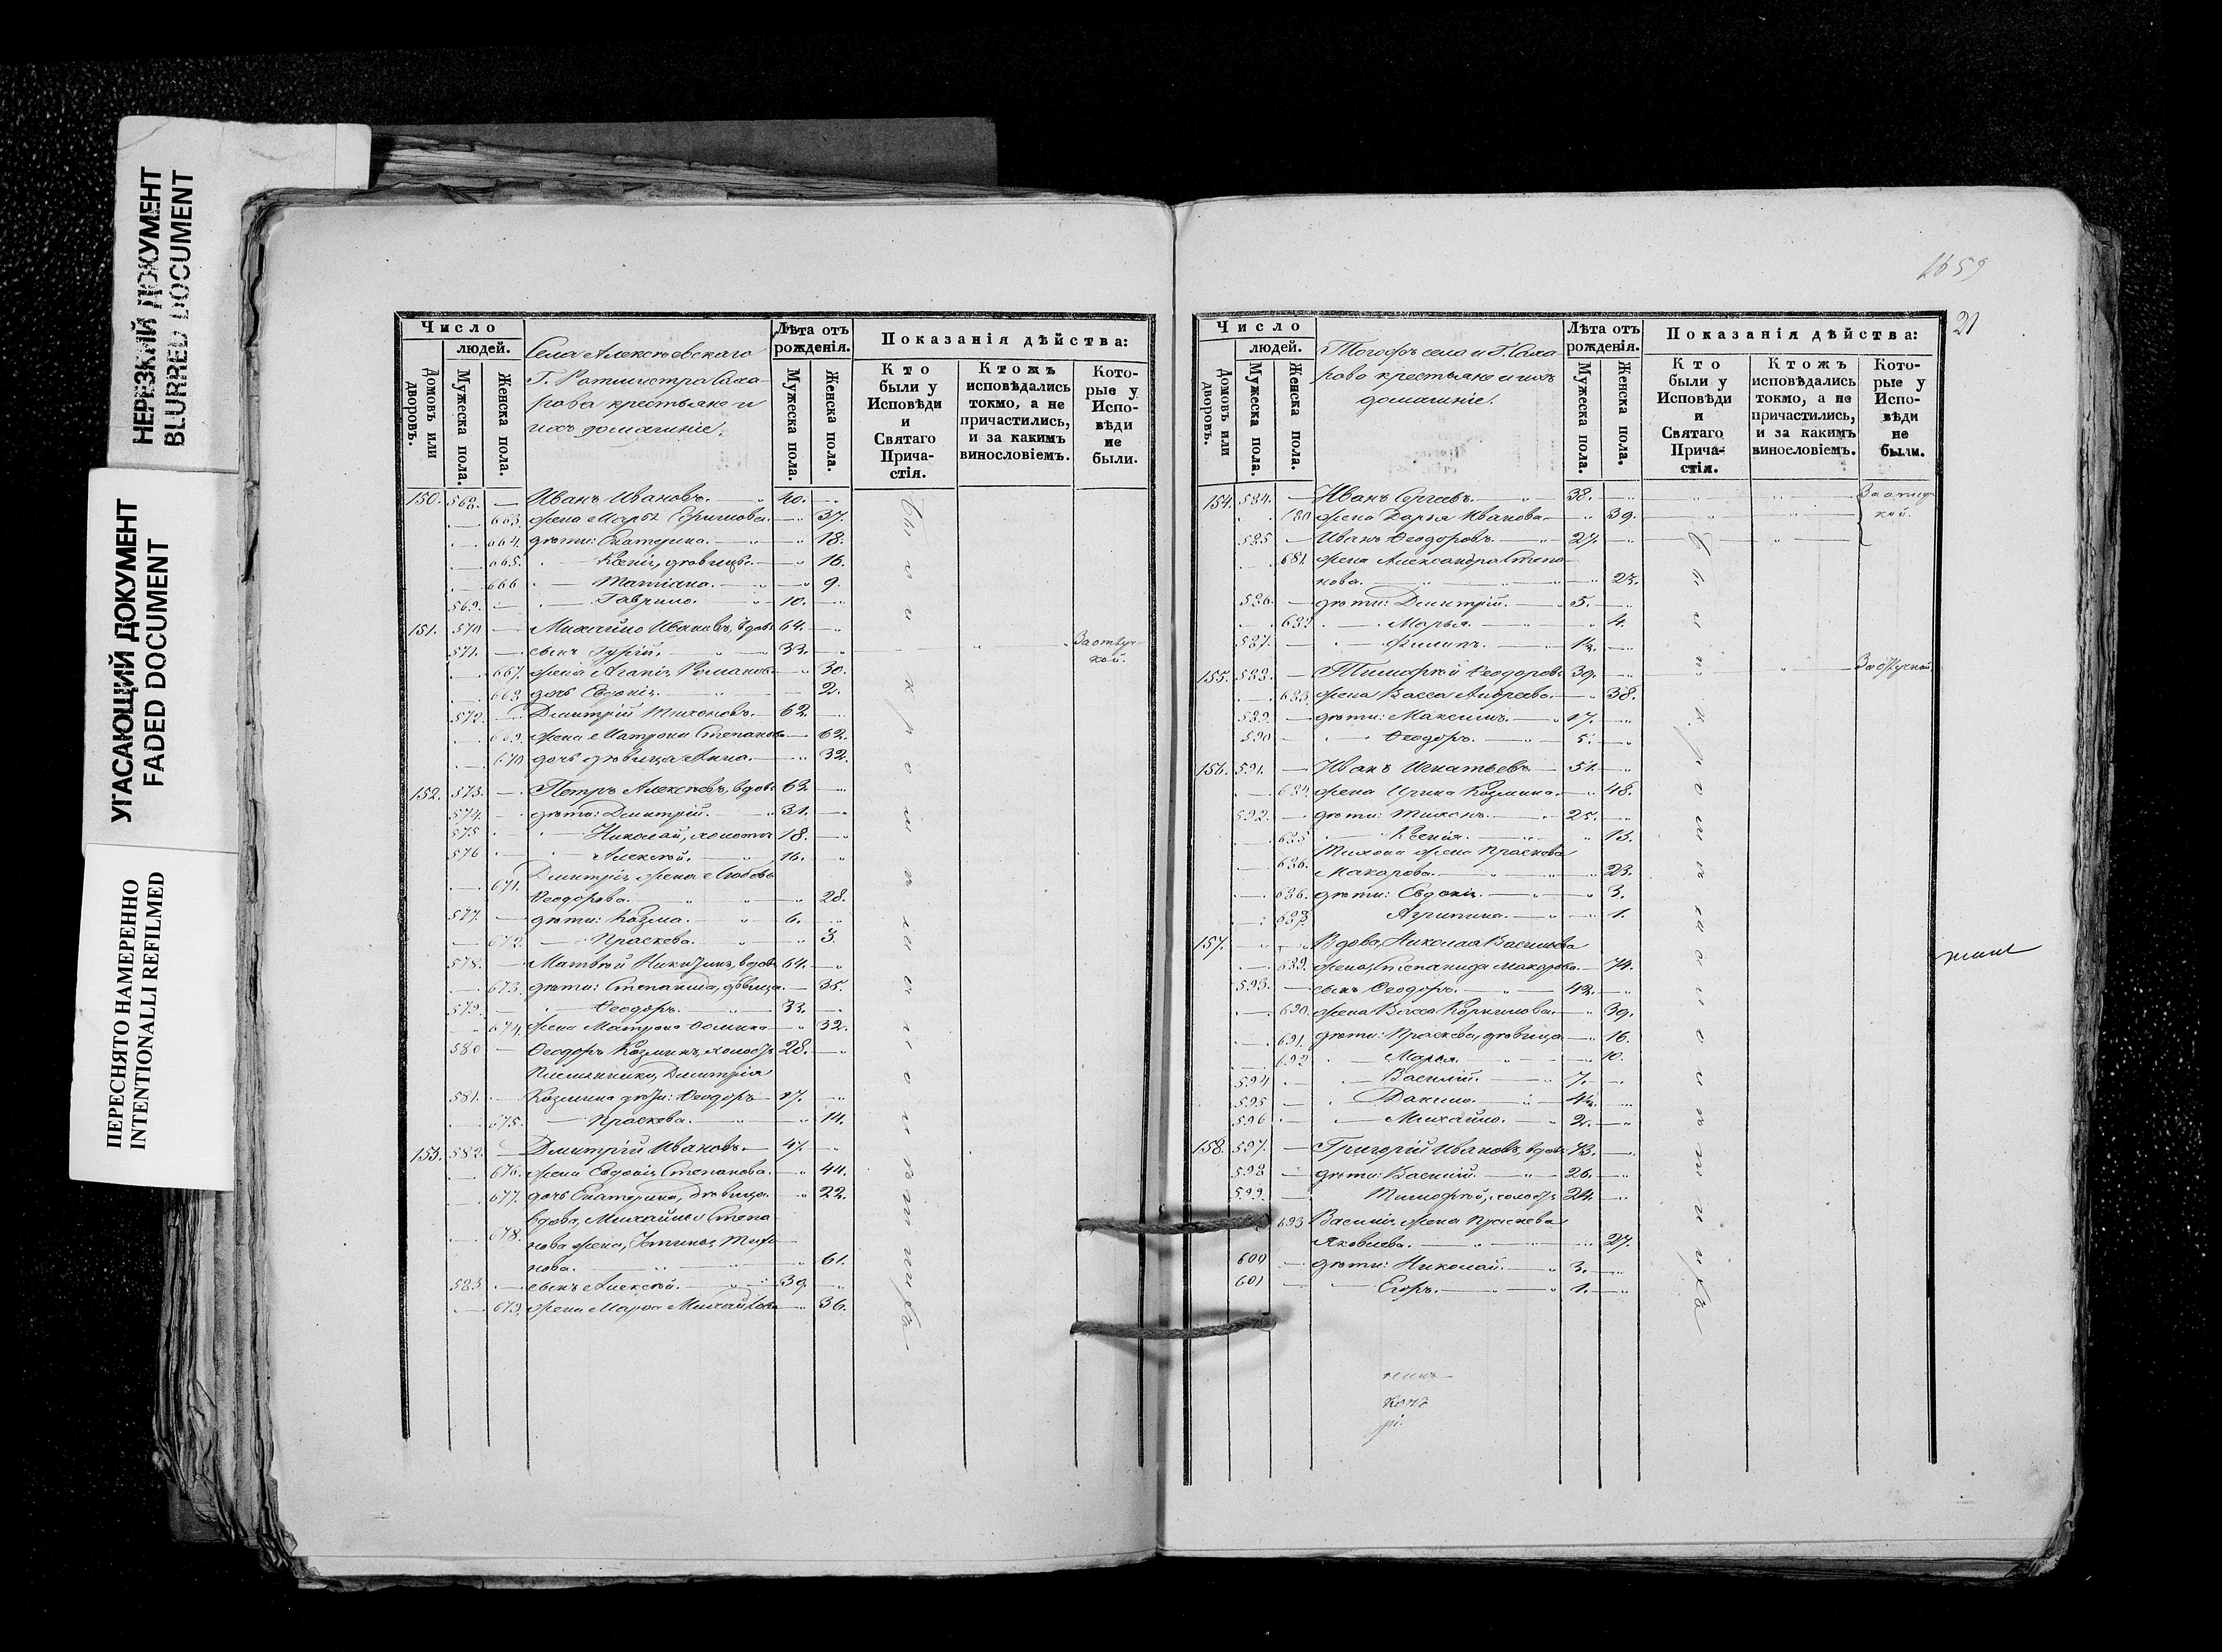 НЕРЕЗКИЙ ДОКУМЕНТ
BLURRED DOCUMENT
УГАСАЮЩИЙ ДОКУМЕНТ
FADED DOCUMENT
ПЕРЕСНЯТО НАМЕРЕННО
INTENTIONALLI REFILMED
Число
людей.
Домовъ или дворовъ.
Мужеска пола.
Женска пола.
Села Алексѣевскаго
Г. Ротмистра Саха-
рова крестьяне и
ихъ домашніе.
Лѣта отъ рожденія.
Мужеска пола.
Женска пола.
Показанія дѣйства:
Кто были у Исповѣди и Святаго Прича-стія.
Ктожъ исповѣдались токмо, а не причастились, и за какимъ винословіемъ.
Кото-рые у Испо-вѣди не были.
150. 568. — Иванъ Ивановъ. 40.
663. жена Марѳа Ефимова. 37.
664. дѣти: Екатерина. 18.
665. Ксенія, дѣвица. 16.
666 Татіана. 9.
569. Гаврило. 10.
151. 570 Михайло Ивановъ, вдов. 64.
571. сынъ Гурій. 33. За отлуч-
кой.
667. жена Агапія Романова 30.
668. дочь Евдокія. 2.
572. Дмитрій Тихоновъ. 62.
669. жена Матрона Степанова 62.
670 дочь дѣвица Анна. 32.
152. 573. Петръ Алексѣевъ, вдов. 62.
574. дѣти: Дмитрій. 31.
575 Николай, холостъ 18.
576 Алексѣй. 16.
671. Дмитрія жена Любовь
Ѳеодорова. 28.
577. дѣти: Козма. 6.
672. Праскева. 3.
578. Матвѣй Никитинъ, вдов. 64.
673. дѣти: Степанида, дѣвица. 35.
579. Ѳеодоръ. 33.
674. жена Матрона 32.
580 Ѳеодоръ Козминъ, холостъ 28.
Племянники, Дмитрія
581. Козмина дѣти: Ѳеодоръ 17.
675. Праскева. 14.
153. 582. Дмитрій Ивановъ. 47.
676. жена Евдокія Степанова. 44.
677. дочь Екатерина, дѣвица. 22.
678. вдова, Михайла Степа-
нова жена, Устинья Тихо-
нова. 61.
583 сынъ Алексѣй. 39.
679. жена Марѳа Михайлова 36.
Были
и
къ
прошл
1659
21
Число
людей.
Домовъ или дворовъ.
Мужеска пола.
Женска пола.
Тогожъ села и Г. Саха-
рова крестьяне и ихъ
домашніе.
Лѣта отъ рожденія.
Мужеска пола.
Женска пола.
Показанія дѣйства:
Кто были у Исповѣди и Святаго Прича-стія.
Ктожъ исповѣдались токмо, а не причастились, и за какимъ винословіемъ.
Кото-рые у Испо-вѣди не были.
154. 584. Иванъ Сергѣевъ. 38. За отлуч-
кой.
680 жена Дарья Иванова 39.
585 Иванъ Ѳеодоровъ. 27.
681. жена Александра Степа-
нова. 23.
586. дѣти: Дмитрій. 5.
682. Марья. 4.
587. Филиппъ. 1½.
155. 588. Тимофѣй Ѳеодоровъ 39. За отлучкой
683. жена Васса Андреева. 38.
589. дѣти: Максимъ. 17.
590 Ѳеодоръ. 5.
156. 591. Иванъ Игнатьевъ 51.
684. жена Ирина Козмина. 48.
592. дѣти: Тихонъ. 25.
685 Ксенія. 13.
636. Тихона жена Праскева
Макарова. 23.
636. дѣти: Евдокія. 3.
Агрипина. 1.
157. Вдова, Николая Васильева
689. жена, Степанида Макарова 74.
593. сынъ Ѳеодоръ. 42.
690. жена Васса Корнилова. 39.
691. дѣти: Праскева, дѣвица 16.
692 Марья. 10.
594 Василій. 7.
595 Данило. 4½.
596 Михайло. 2.
158. 597. Григорій Ивановъ, вдов. 73.
598 дѣти: Василій. 26.
599. Тимофѣй, холостъ 24.
693 Василія жена Праскева
Яковлева. 27.
600 дѣти: Николай. 3.
601 Егоръ. 1.